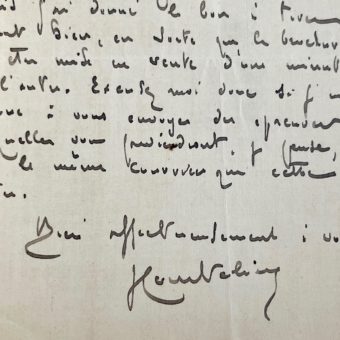 j'ai donné le bon à tirer
bien, en sorte que la brochure
être mise en vente d'une minute
l'autre. Excusez moi donc si j'
à vous envoyer des épreuves
vous parviendront, je pense,
le même courrier que cette
Bien affectueusement à vo